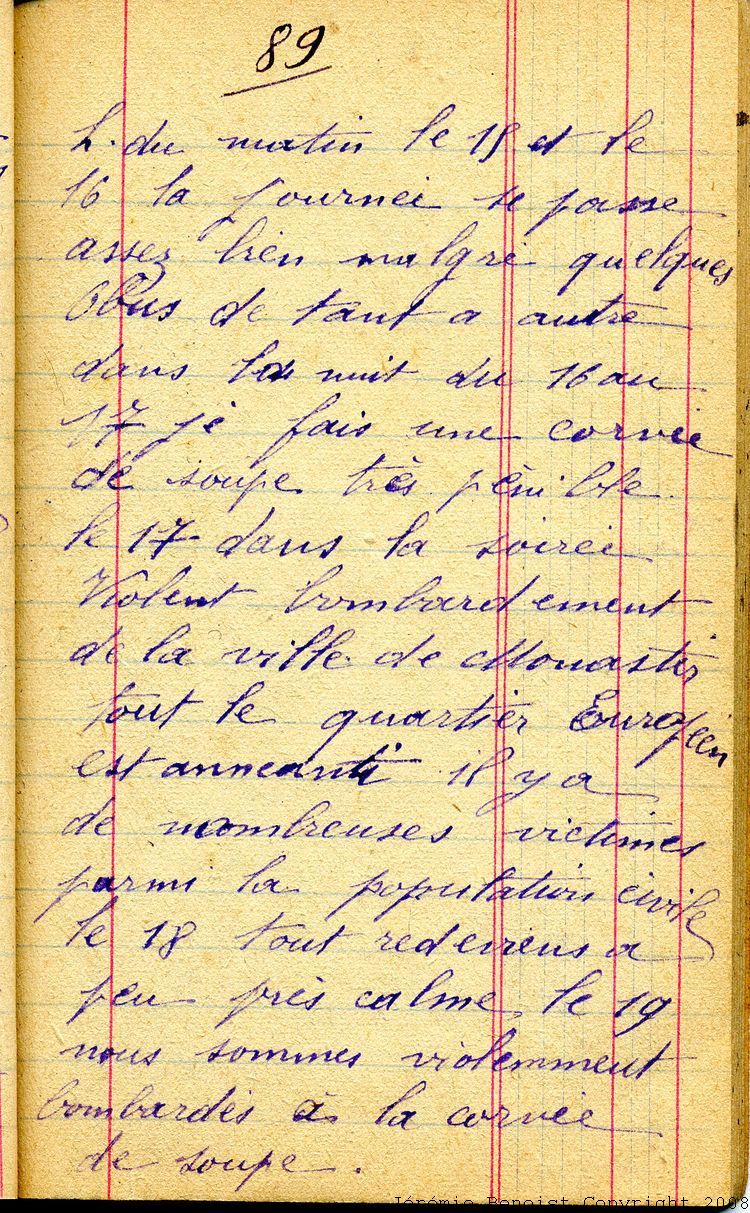 89
h. du matin le 15 et le
16 la journeé se passe
assez bien malgré quelques
Obus de tant a autre
dans la nuit du 16 au
17 je fais une corveé
de soupe très pénible
le 17 dans la soireé
Violent bombardement
de la ville de Monastir
tout le quartier Européen
est anneanti il y a
de nombreuses victimes
parmi la population civile
le 18 tout redeviens a
peu près calme le 19
nous sommes violemment
bombardés à la corveé
de soupe.
Jérémie Benoist Copyright 2008